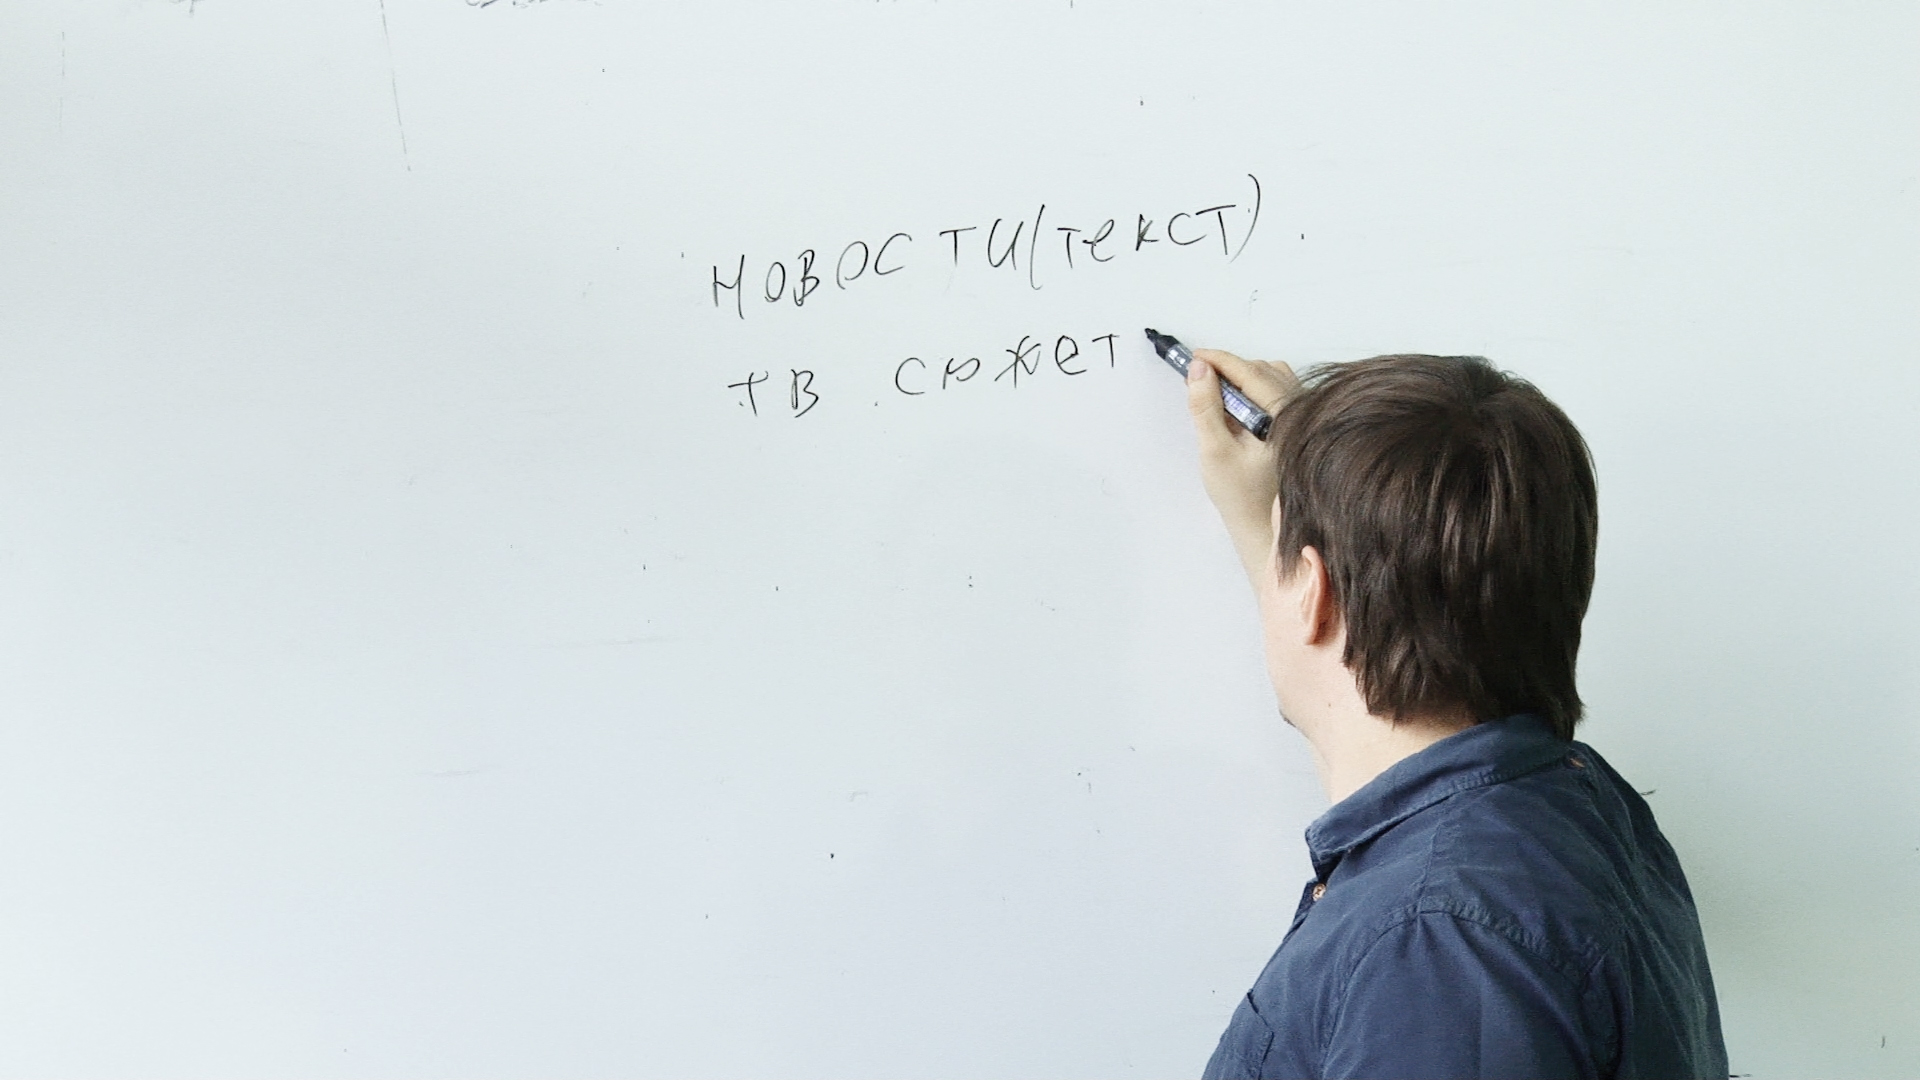 новости (текст)
тв сюжет